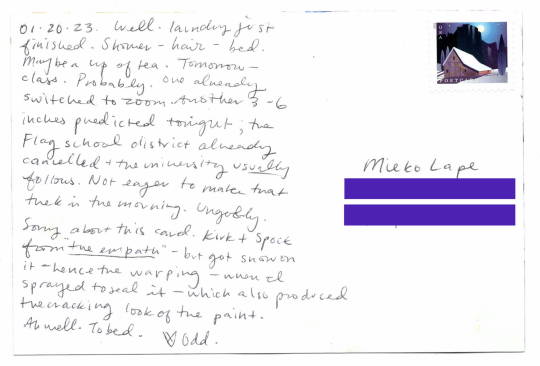 01.20.23. Well. laundry just
finished. Shower - hair - bed.
Maybe a cup of tea. Tomorrow -
class. Probably. One already
switched to zoom. Another 3-6
inches predicted tonight; the
Flag school district already
cancelled + the university usually
follows. Not eager to make that
trek in the morning. Ungodly.
Sorry about this card. Kirk + Spock
from "the empath" - but got snow on
it - hence the warping - when I
sprayed to seal it - which also produced
the cracking look of the paint.
Ah well. To bed. Odd.
USA
POSTCARD
Mieko Lape